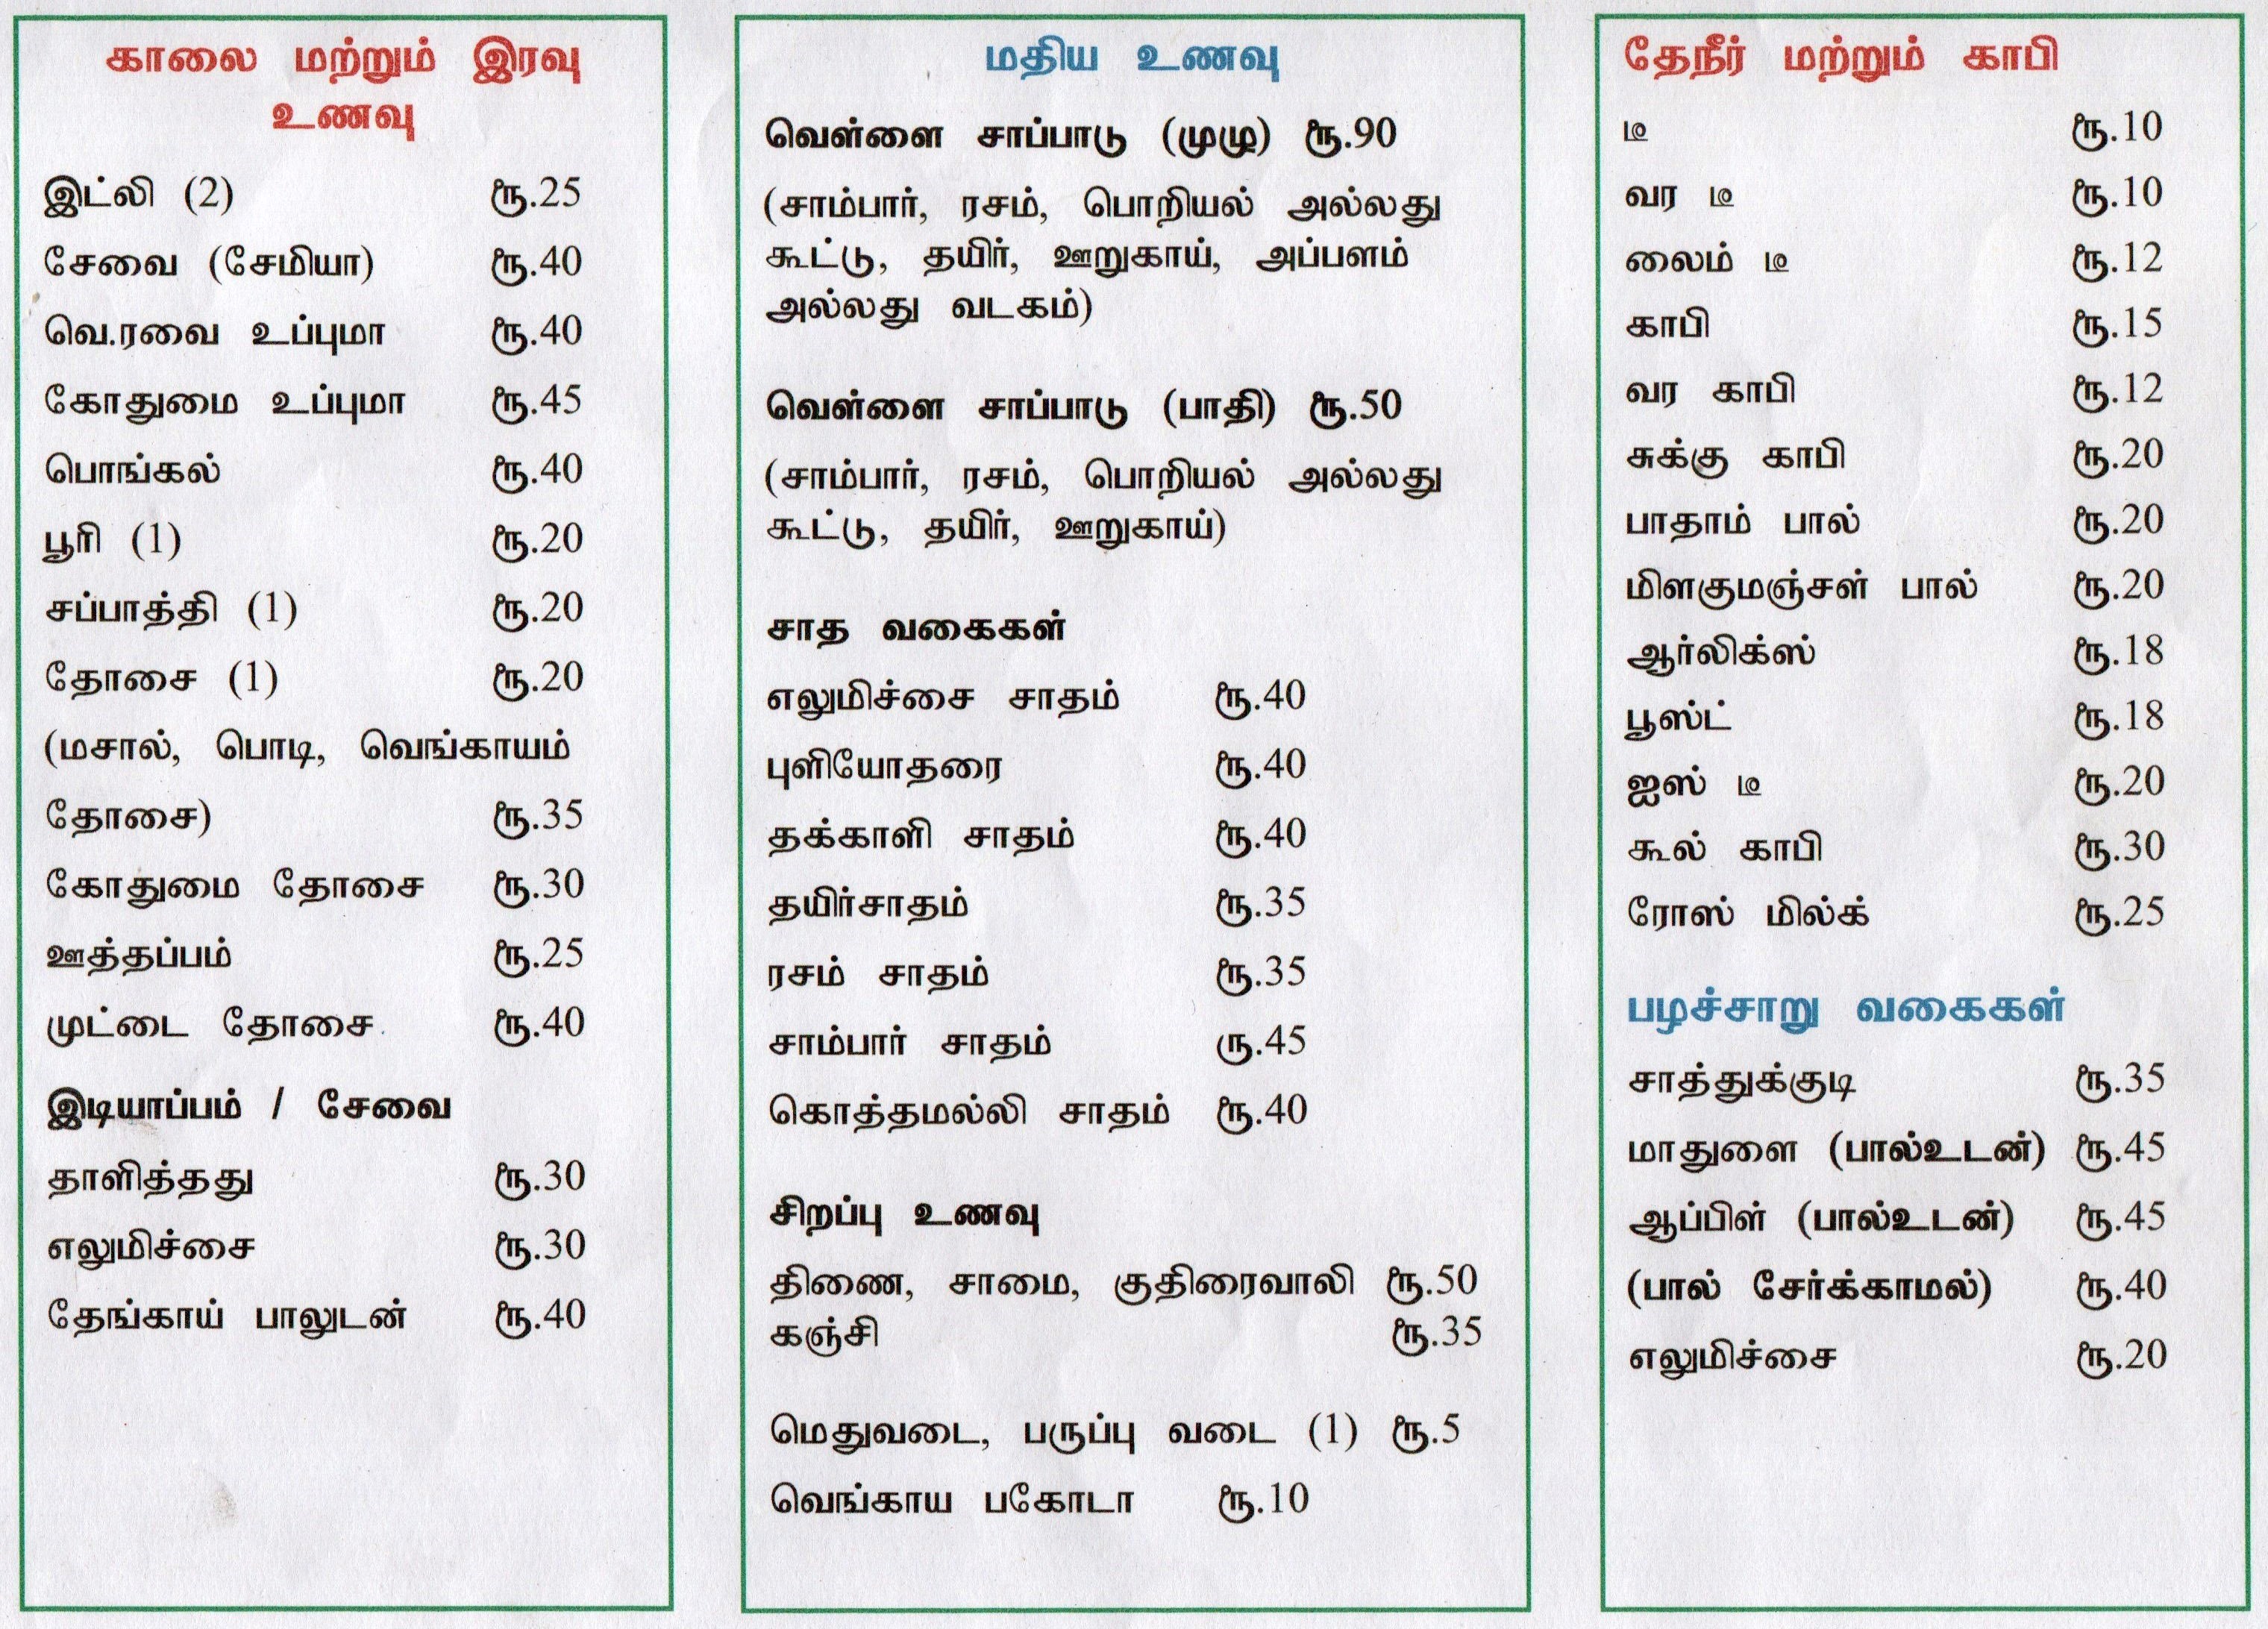 காலை மற்றும் இரவு
உணவு
இட்லி (2) ரூ.25
சேவை (சேமியா) ரூ.40
வெ.ரவை உப்புமா ரூ.40
கோதுமை உப்புமா ரூ.45
பொங்கல் ரூ.40
பூரி (1) ரூ.20
சப்பாத்தி (1) ரூ.20
தோசை (1) ரூ.20
(மசால், பொடி, வெங்காயம்
தோசை) ரூ.35
கோதுமை தோசை ரூ.30
ஊத்தப்பம் ரூ.25
முட்டை தோசை ரூ.40
இடியாப்பம் / சேவை
தாளித்தது ரூ.30
எலுமிச்சை ரூ.30
தேங்காய் பாலுடன் ரூ.40
மதிய உணவு
வெள்ளை சாப்பாடு (முழு) ரூ.90
(சாம்பார், ரசம், பொறியல் அல்லது
கூட்டு, தயிர், ஊறுகாய், அப்பளம்
அல்லது வடகம்)
வெள்ளை சாப்பாடு (பாதி) ரூ.50
(சாம்பார், ரசம், பொறியல் அல்லது
கூட்டு, தயிர், ஊறுகாய்)
சாத வகைகள்
எலுமிச்சை சாதம் ரூ.40
புளியோதரை ரூ.40
தக்காளி சாதம் ரூ.40
தயிர்சாதம் ரூ.35
ரசம் சாதம் ரூ.35
சாம்பார் சாதம் ரு.45
கொத்தமல்லி சாதம் ரூ.40
சிறப்பு உணவு
திணை, சாமை, குதிரைவாலி ரூ.50
கஞ்சி ரூ.35
மெதுவடை, பருப்பு வடை (1) ரூ.5
வெங்காய பகோடா ரூ.10
தேநீர் மற்றும் காபி
டீ ரூ.10
வர டீ ரூ.10
லைம் டீ ரூ.12
காபி ரூ.15
வர காபி ரூ.12
சுக்கு காபி ரூ.20
பாதாம் பால் ரூ.20
மிளகுமஞ்சள் பால் ரூ.20
ஆர்லிக்ஸ் ரூ.18
பூஸ்ட் ரூ.18
ஐஸ் டீ ரூ.20
கூல் காபி ரூ.30
ரோஸ் மில்க் ரூ.25
பழச்சாறு வகைகள்
சாத்துக்குடி ரூ.35
மாதுளை (பால்உடன்) ரூ.45
ஆப்பிள் (பால்உடன்) ரூ.45
(பால் சேர்க்காமல்) ரூ.40
எலுமிச்சை ரூ.20